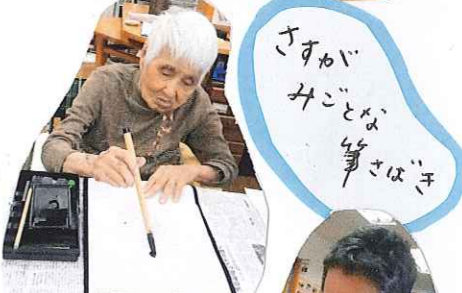 さすが
みごとな
筆さばき